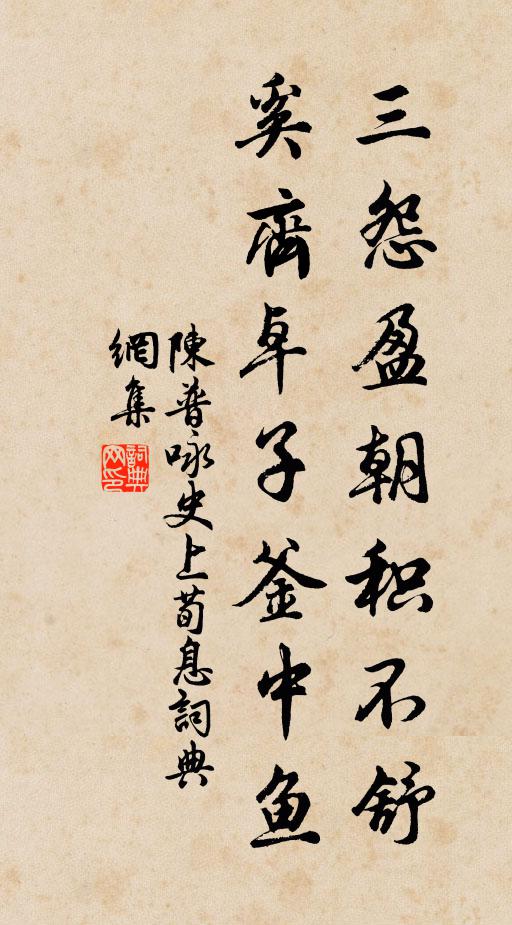 三怨盈朝积不舒
奚齊卓子釜中鱼
陳普咏史上荀息詞典
網集
詞典网印